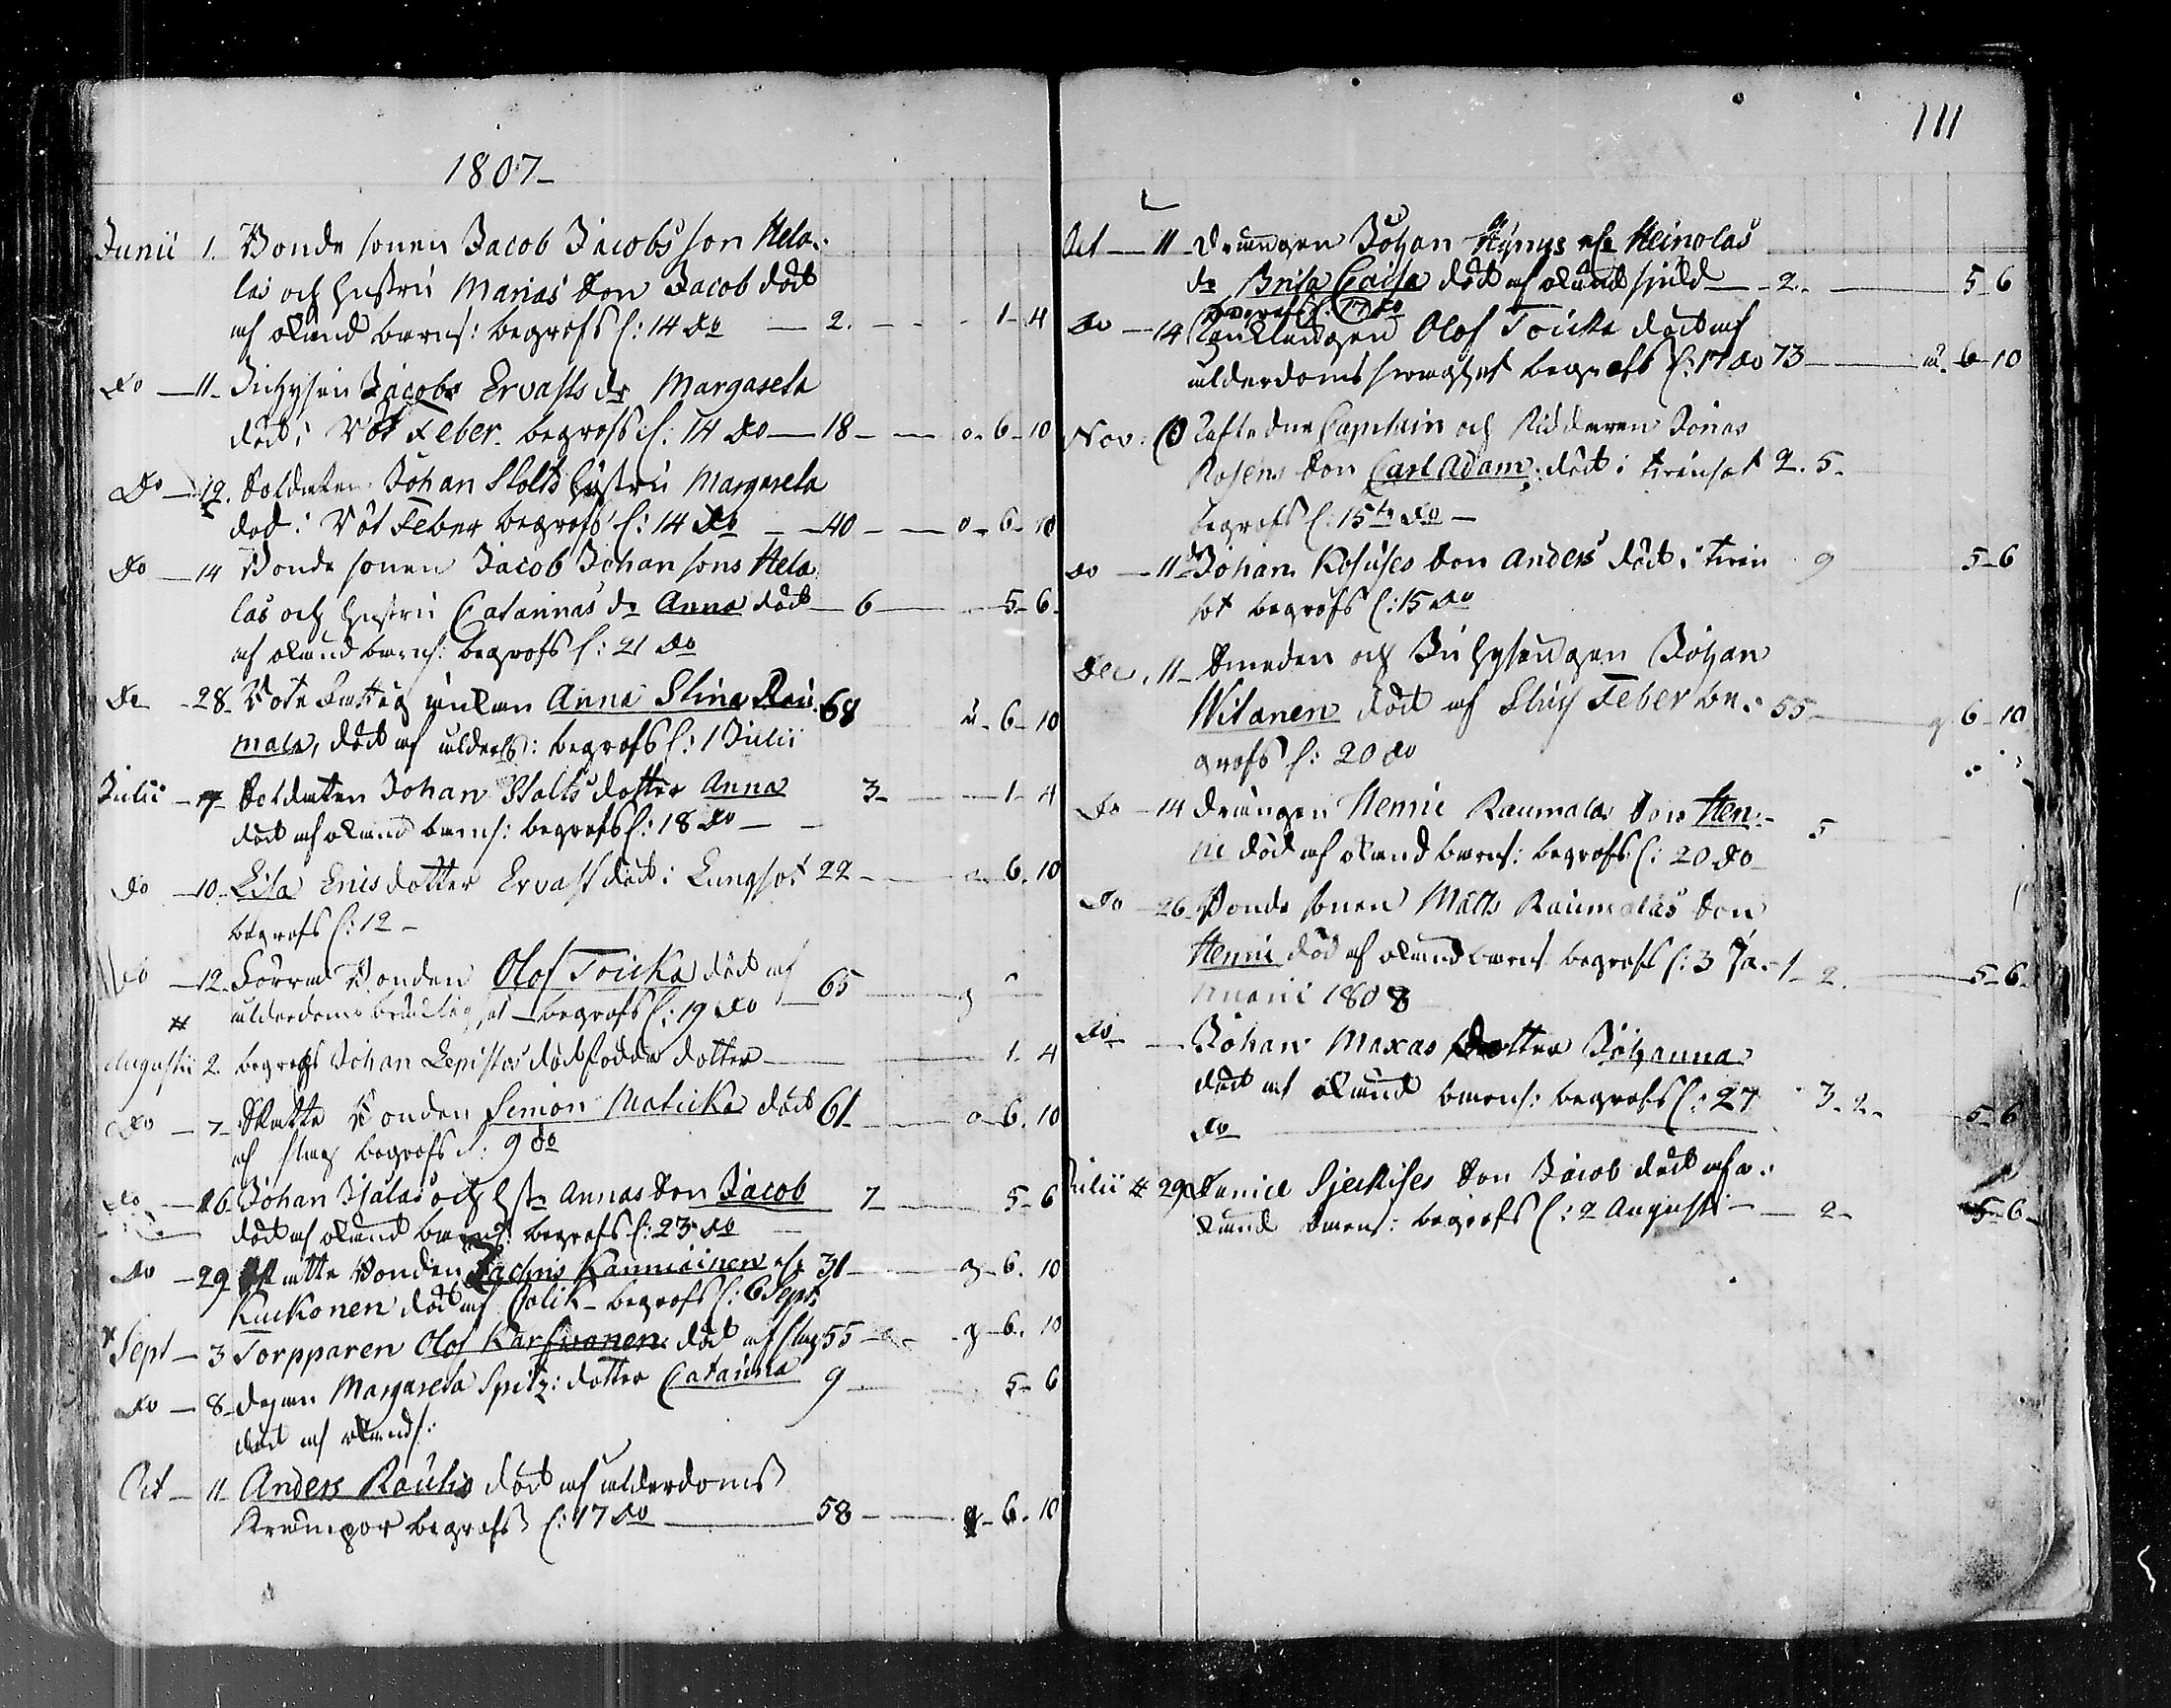 111
1807
Junii 1. Bonde sonen Jacob Jacobs son Hela-
las och hustru Marias Son Jacob död
af okänd barns: begrofs d: 14 do — 2. — 1-4
do — 11. Inhysen Jacobs Ervasts dr Margareta
död i Röt Feber begrofs d: 14 do — 18 — 6-10
Do — 12. Soldaten Johan Stolts hustru Margareta
död i Röt Feber begrofs d: 14 do — 40 — 6-10
do — 14 Bonde sonen Jacob Johan sons Hela
las och hustru Catarinas dr Anna död — 6 — 5-6
af okänd barns: begrofs d: 21 do
do - 28. Rote Fattig änkan Anna Stina Rau 68 ä-6-10
mala, död af ålders: begrofs d: 1 Julii
Julii Soldaten Johan Stolts dotter Anna 3 — 1-4
död af okänd barns: begrofs d: 18 do —
do — 10. Lisa Erics dotter Ervast död i Lungsot 22 — 6.10
begrofs d: 12 —
do — 12. Förra Bonden Olof Toicka död af
# ålderdoms bräcklighet — begrofs d: 19 do — 65 — g
Augustii 2. begrofs Johan Lepistos dödfödda dotter — 1-4
do — 7. Skatte Bonden Simon Maticka död 61 — 6.10
af slag begrofs d: 9 do
do — 16. Johan och hstr Annas Son Jacob 7 — 5-6
död af okänd barns: begrofs d: 23 do
do — 29 Skatte Bonden Zachris Kanniainen 31 — g-6.10
Kuckonen död af Colik — begrofs d: 6 Sept
Sept — 3 Torpparen Olof Karfvonen död af slag 55 — g-6.10
do — 8. Margareta Spitz: dotter Catarina 9 — 5-6
död af okänd s:
Oct — 11. Anders Rautio död af ålderdoms
Krämpor begrofs d: 17 do — 58 — g-6.10
Oct — 11. Drängen Johan Hynys Heinolas
dr Brita Caisa död af okänd sjukd — 2. — 5-6
begrofs d: 17 do
do — 14 Enklingen Olof Toicka död af
ålderdoms svaghet begrofs d: 17 do 73 — 6-10
Nov: 10 Captain och Ridderen Jonas
Rosens Son Carl Adam död i trinsot 2. 5.
begrofs d: 15 do —
do — 11. Johan Son Anders död i trin 9 5-6
sot begrofs d: 15 do
Dec. 11. Smeden och Inhysingen Johan
Witanen död af Feber be- 55 — g 6-10
grofs d: 20 do
do — 14 drängen Henric Raumalas Son Hen-
ric död af okänd barns: begrofs d: 20 do 5
do 26. Bonde sonen Matts Raumalas Son
Henric död af okänd barns begrofs d: 3 Ja- 1 2. — 5-6
nuarii 1808
do — Johan Maxas dotter Johanna
död af okänd barns: begrofs d: 27 3. 2. 5-6
do
Julii # 29. Son Jacob död af o-
känd barns: begrofs d: 2 Augusti — 2 — 5-6